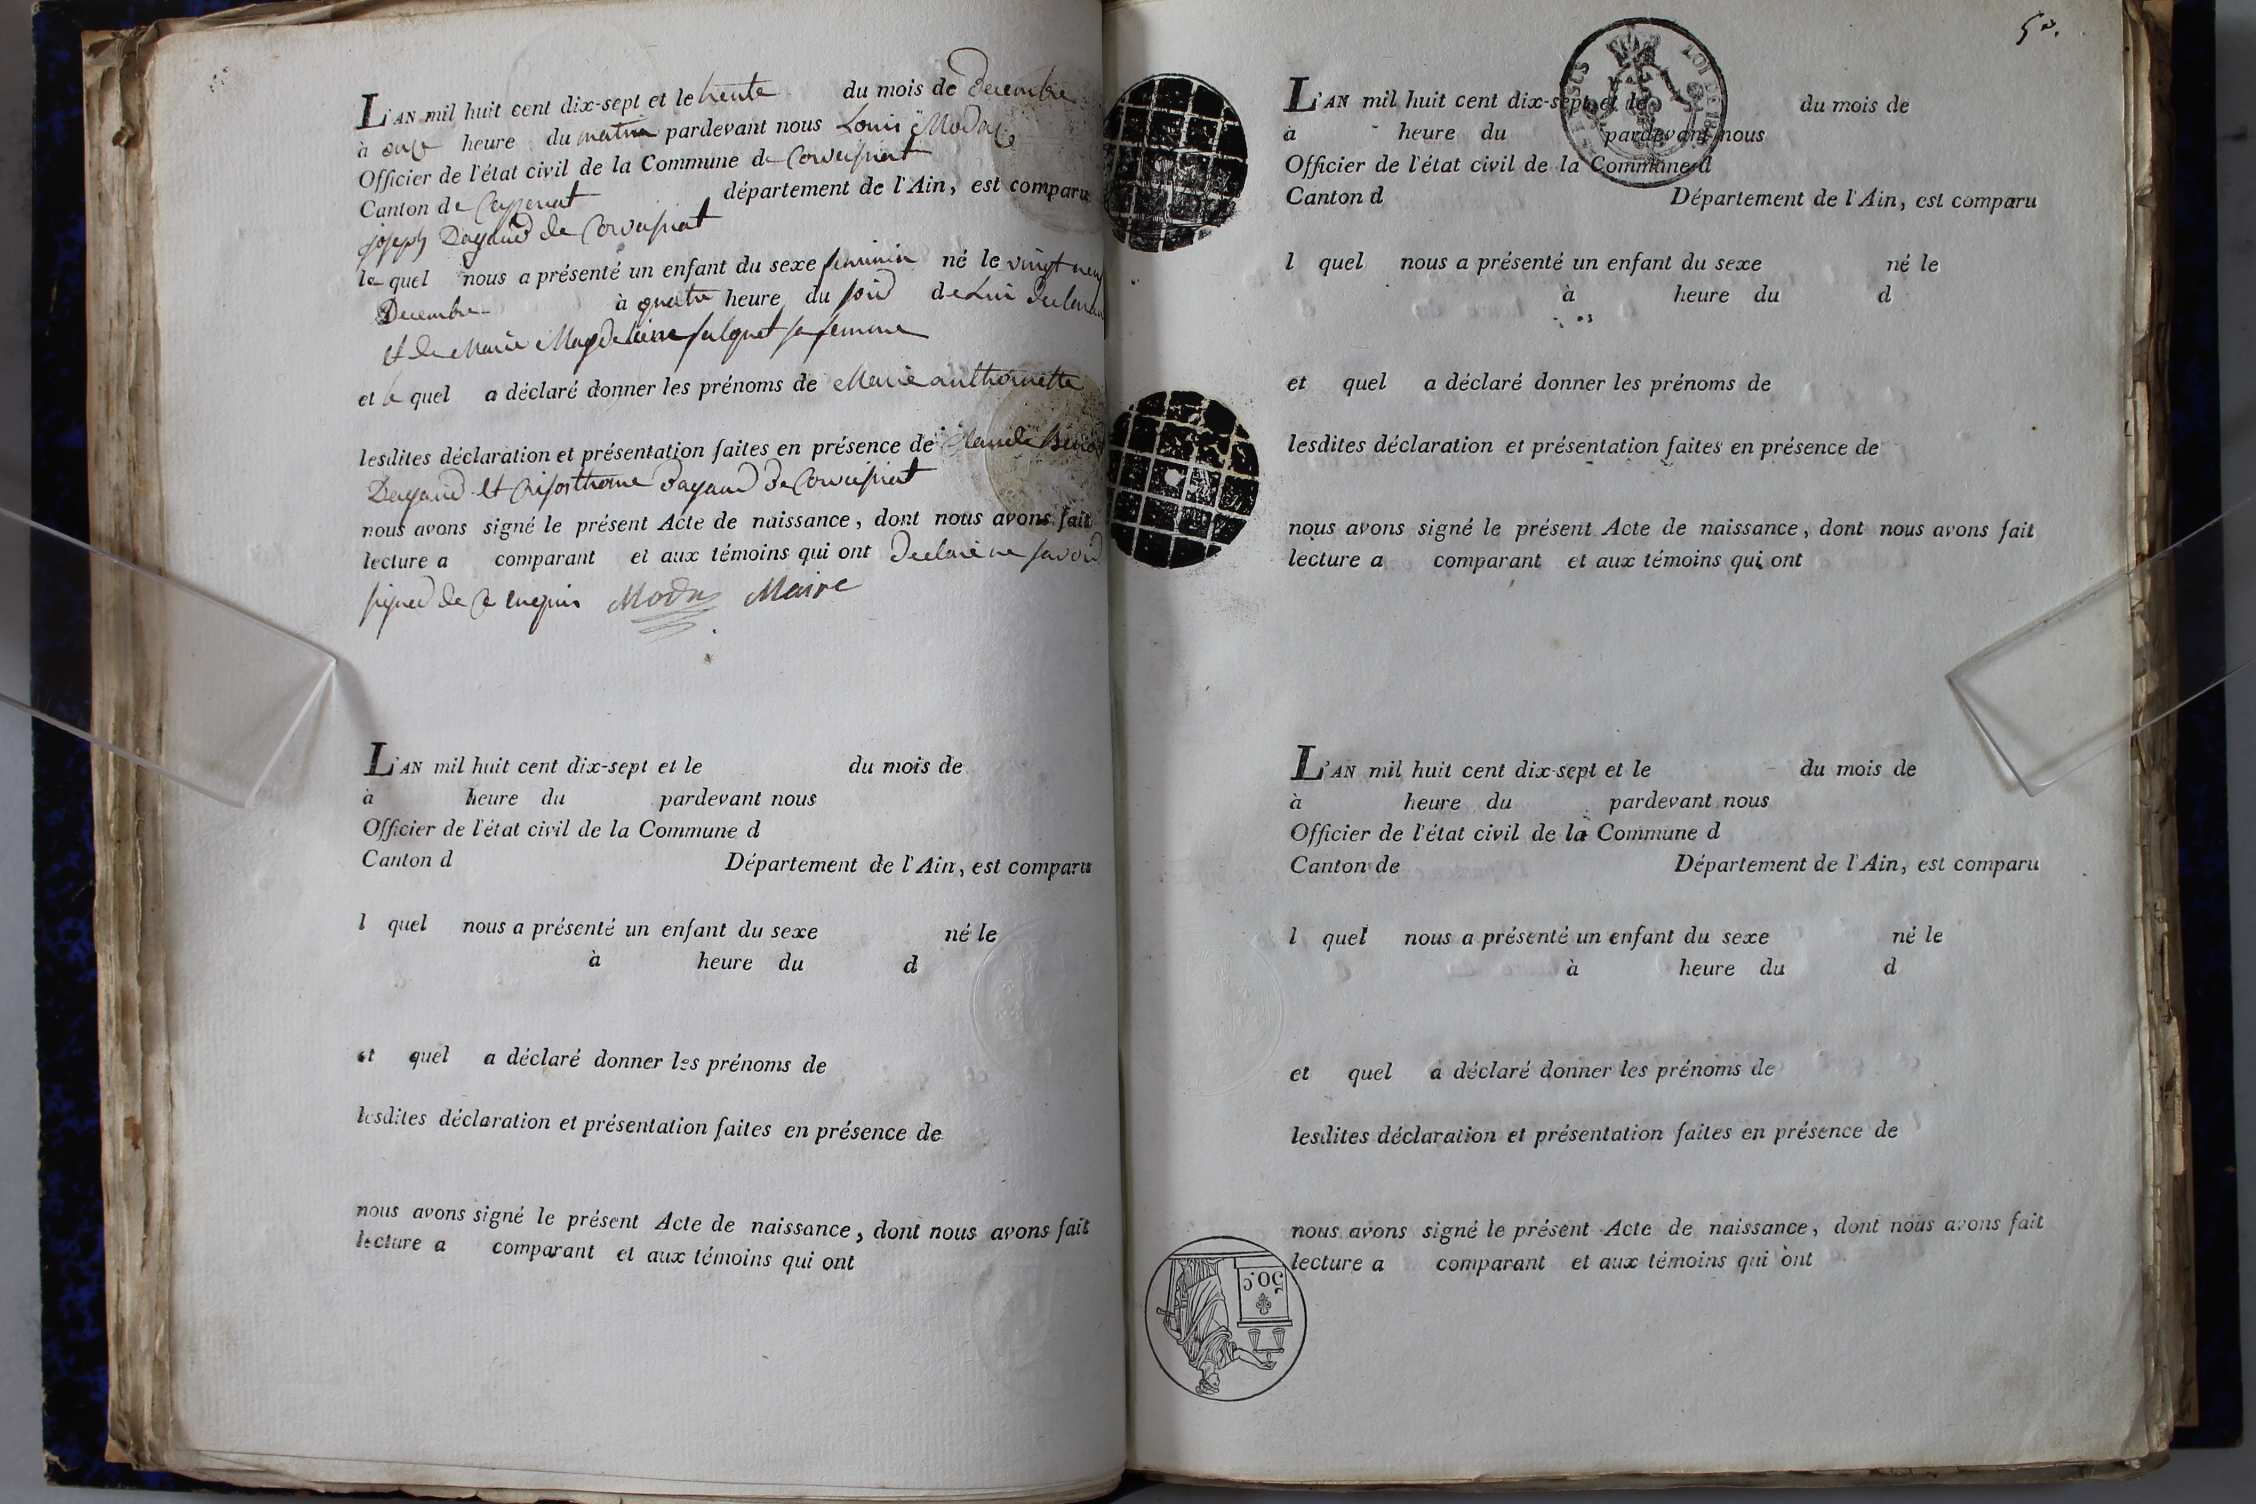 L'AN mil huit cent dix-sept et le trente du mois de Decembre
à onze heure du matin pardevant nous Louis Moda
Officier de l'état civil de la Commune de Corveissiat
Canton de Ceyzeriat département de l'Ain, est comparu
joseph Dagaud de Corveissiat
le quel nous a présenté un enfant du sexe feminin né le vingt neuf
Decembre à quatre heure du soir de Lui declarant
et de Marie Magdeleine falquet sa femme
et le quel a déclaré donner les prénoms de Marie anthoinette
lesdites déclaration et présentation faites en présence de Claude
Dagaud et Crisosthome dagaud de Corveissiat
nous avons signé le présent Acte de naissance, dont nous avons fait
lecture a comparant et aux témoins qui ont declaré ne savoir
signer de ce enquis Moda Maire
L'AN mil huit cent dix-sept et le du mois de
à heure du pardevant nous
Officier de l'état civil de la Commune d
Canton d Département de l'Ain, est comparu
l quel nous a présenté un enfant du sexe né le
à heure du d
et quel a déclaré donner les prénoms de
lesdites déclaration et présentation faites en présence de
nous avons signé le présent Acte de naissance, dont nous avons fait
lecture a comparant et aux témoins qui ont
LOI DE 18
L'AN mil huit cent dix-sept et le du mois de
à heure du pardevant nous
Officier de l'état civil de la Commune d
Canton d Département de l'Ain, est comparu
l quel nous a présenté un enfant du sexe né le
à heure du d
et quel a déclaré donner les prénoms de
lesdites déclaration et présentation faites en présence de
nous avons signé le présent Acte de naissance, dont nous avons fait
lecture a comparant et aux témoins qui ont
L'AN mil huit cent dix-sept et le du mois de
à heure du pardevant nous
Officier de l'état civil de la Commune d
Canton de Département de l'Ain, est comparu
l quel nous a présenté un enfant du sexe né le
à heure du d
et quel a déclaré donner les prénoms de
lesdites déclaration et présentation faites en présence de
nous avons signé le présent Acte de naissance, dont nous avons fait
lecture a comparant et aux témoins qui ont
50 c